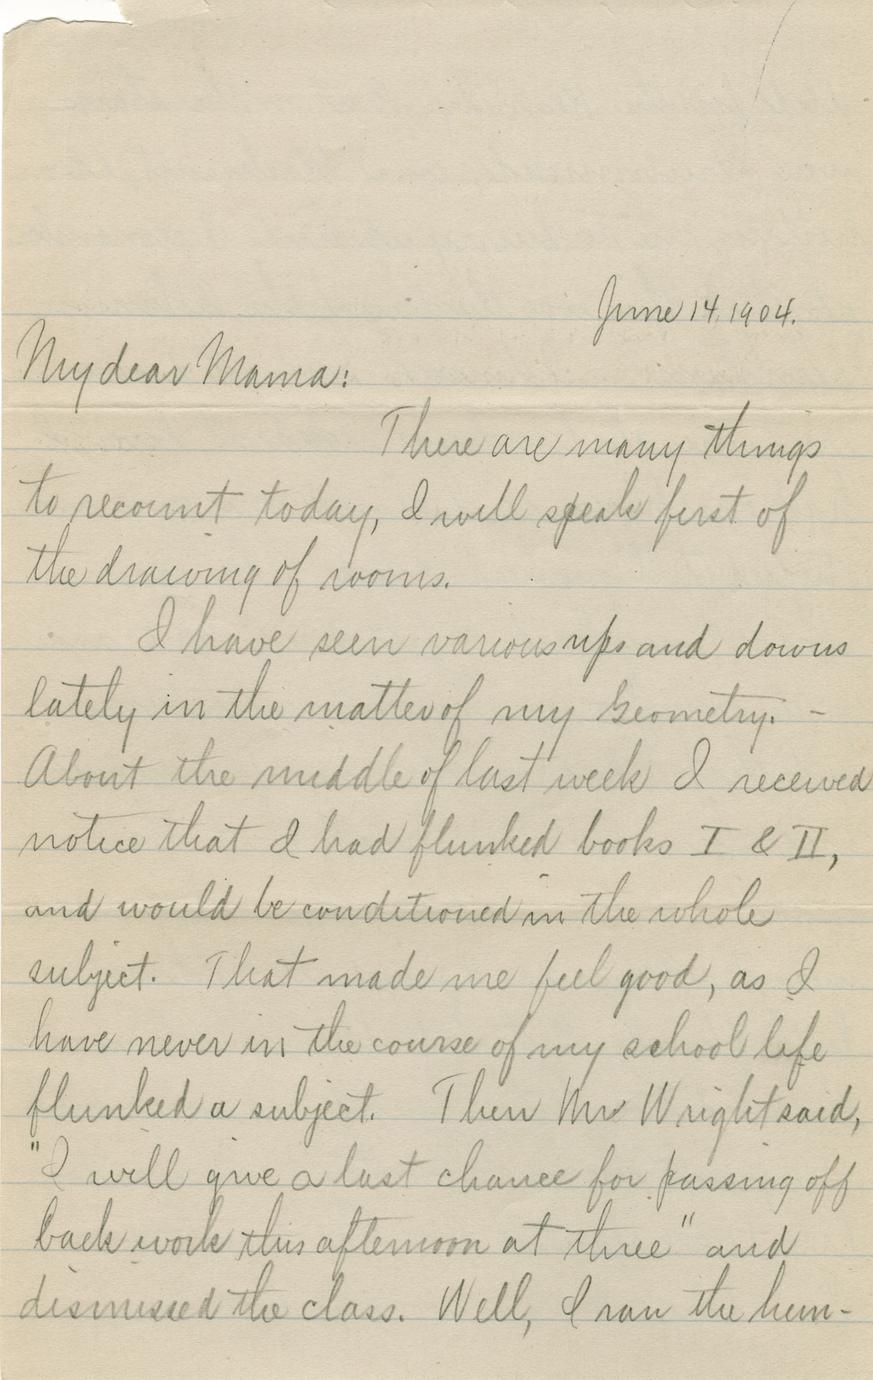 June 14, 1904.
My dear Mama:
There are many things
to recount today, I will speak first of
the drawing of rooms.
I have seen various ups and downs
lately in the matter of my Geometry. –
About the middle of last week I received
notice that I had flunked books I & II,
and would be conditioned in the whole
subject. That made me feel good, as I
have never in the course of my school life
flunked a subject. Then Mr Wright said,
"I will give a last chance for passing off
back work this afternoon at three" and
dismissed the class. Well, I ran the hun-